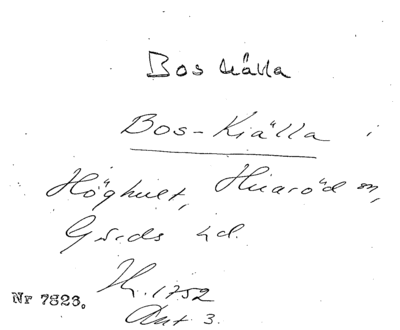 Bos källa
Bos-Kiälla i
Höghult, Huaröd sn,
Gärds hd.
1752
Akt 3.
Nr 7523.